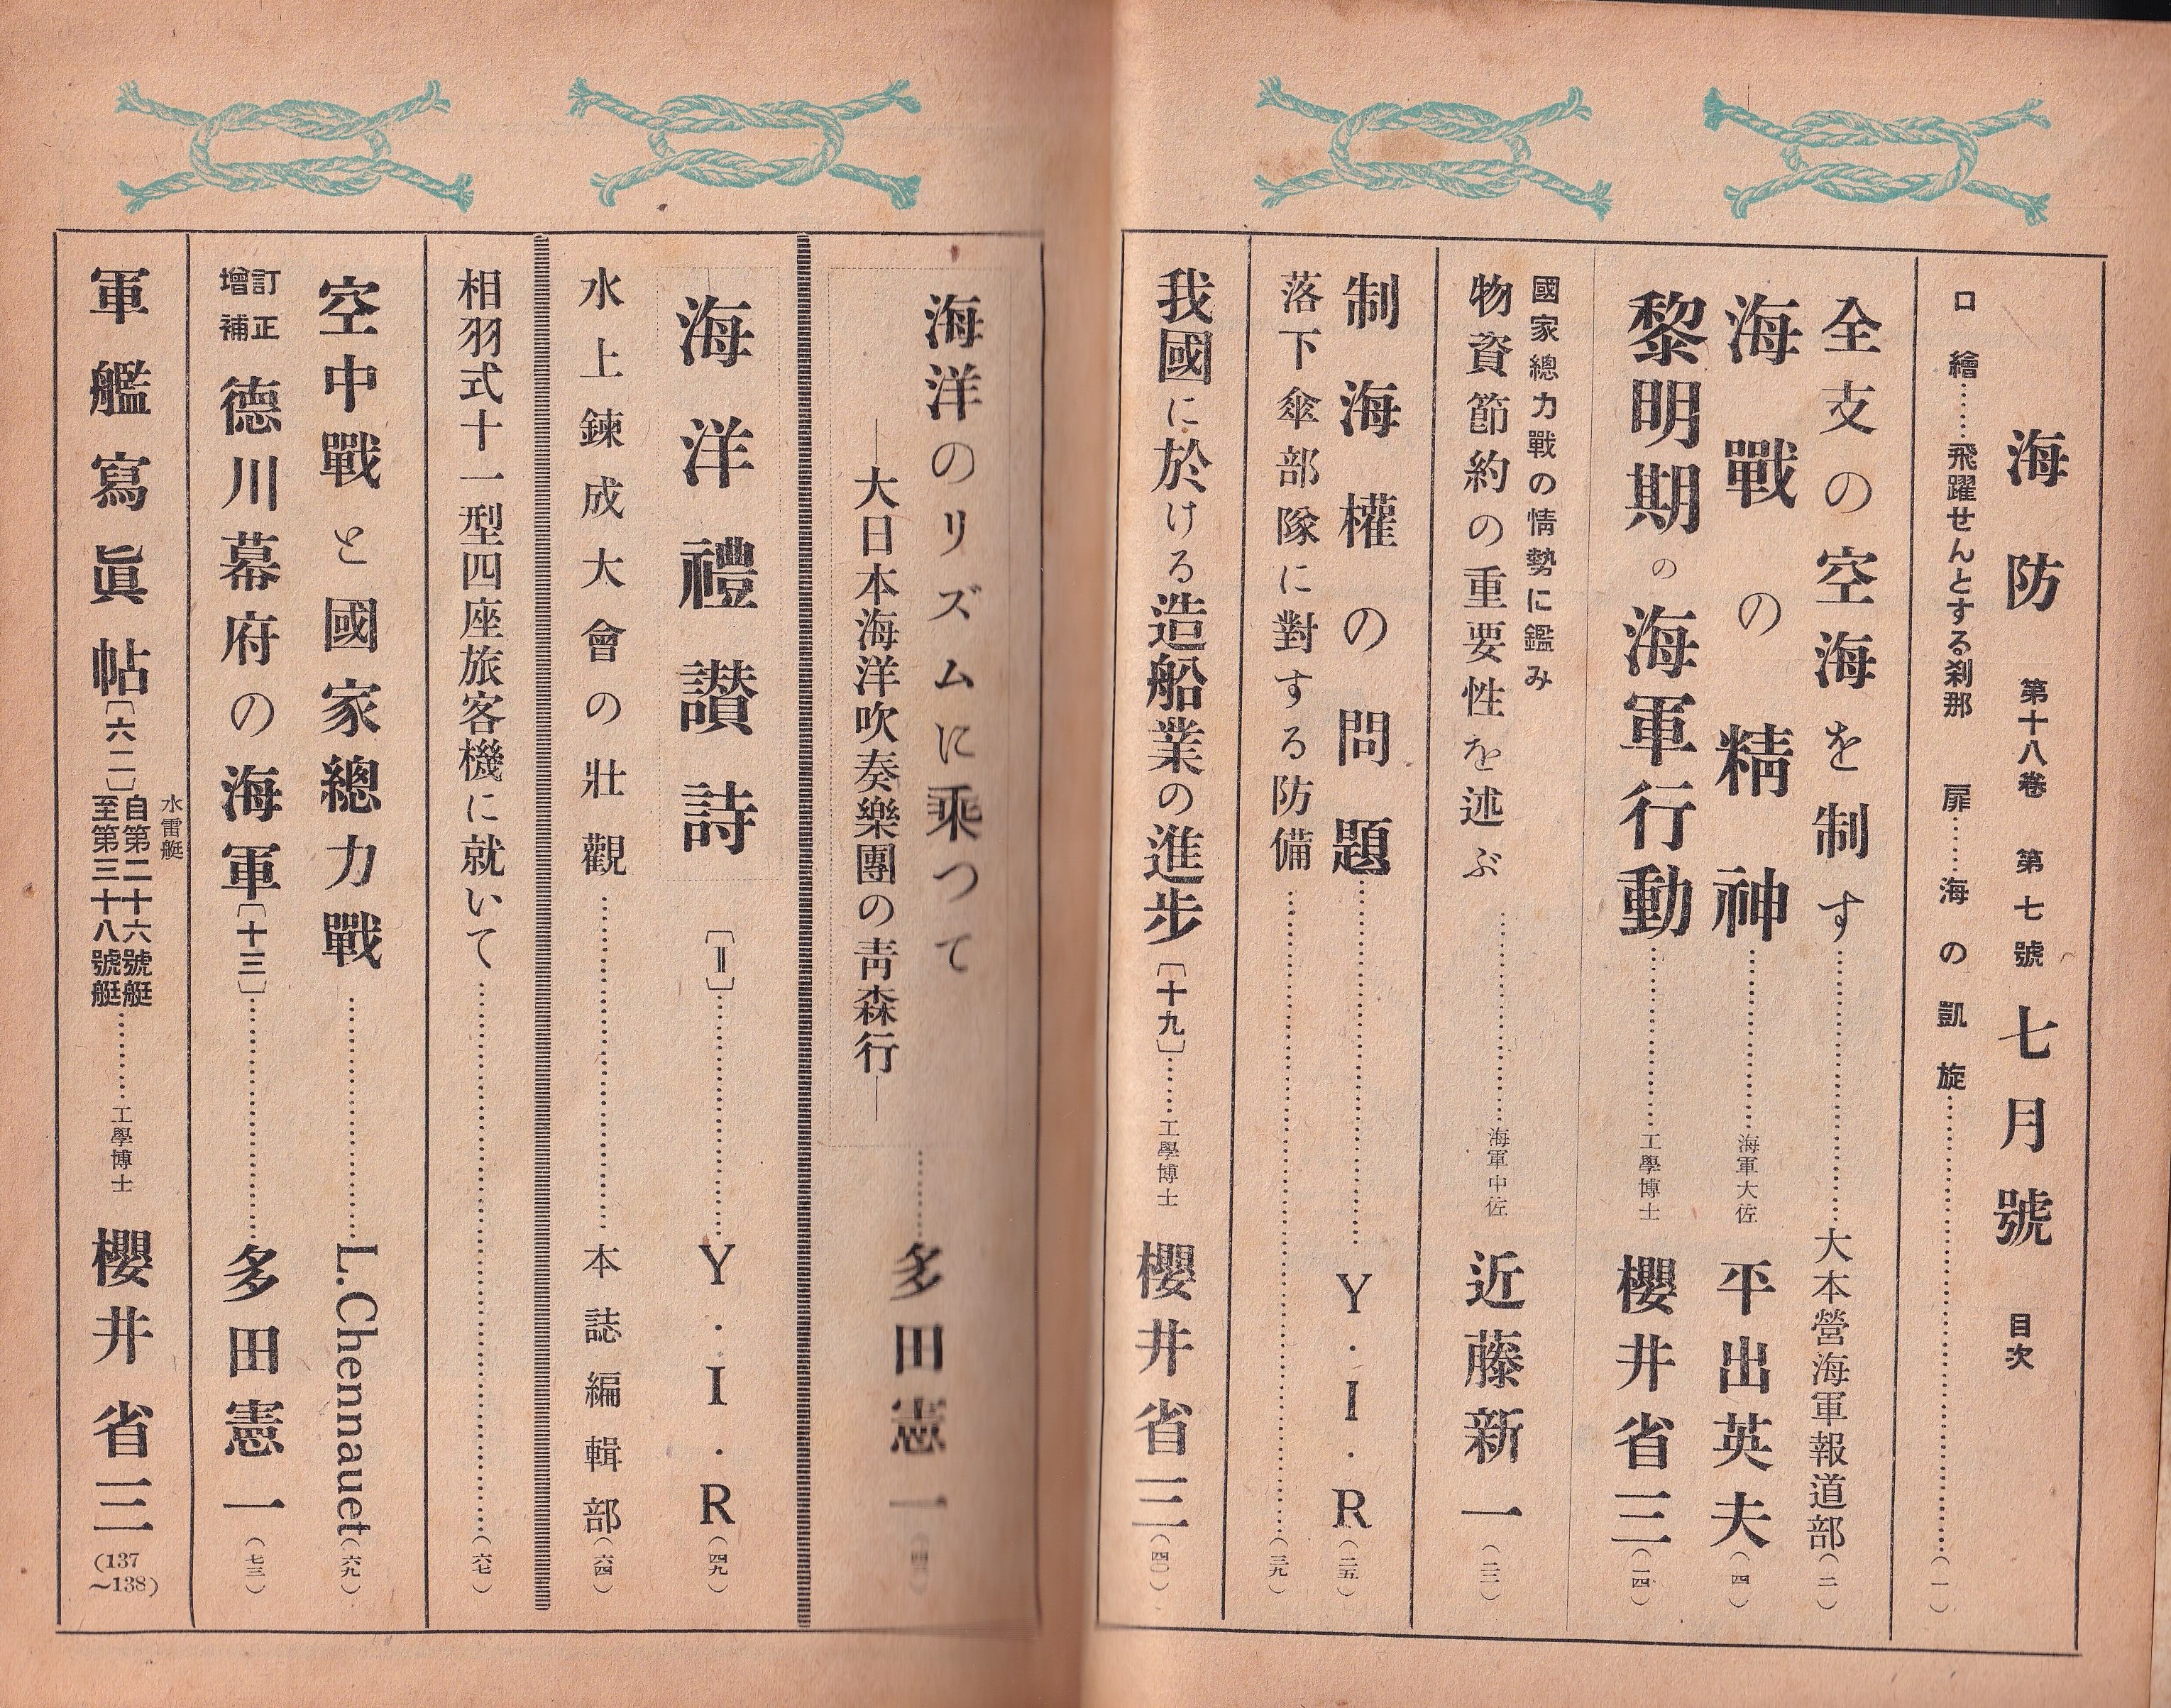 海防 第十八卷 第七號 七月號 目次
口繪……飛躍せんとする刹那 扉……海の凱旋……(一)
全支の空海を制す……大本營海軍報道部(二)
海戰の精神……海軍大佐 平出英夫(四)
黎明期の海軍行動……工學博士 櫻井省三(一四)
國家總力戰の情勢に鑑み
物資節約の重要性を述ぶ……海軍中佐 近藤新一(二二)
制海權の問題……Y・I・R(二五)
落下傘部隊に對する防備……(三九)
我國に於ける造船業の進步〔十九〕……工學博士 櫻井省三(四〇)
海洋のリズムに乘つて
―大日本海洋吹奏樂團の靑森行―……多田憲一
海洋禮讃詩〔Ⅱ〕……Y・I・R(四九)
水上鍊成大會の壯觀……本誌編輯部(六四)
相羽式十一型四座旅客機に就いて……(六七)
空中戰と國家總力戰……L.Chennauet(六九)
訂正增補 德川幕府の海軍〔十三〕……多田憲一(七三)
軍艦寫眞帖〔六二〕水雷艇 自第二十六號艇 至第三十八號艇……工學博士 櫻井省三(137~138)